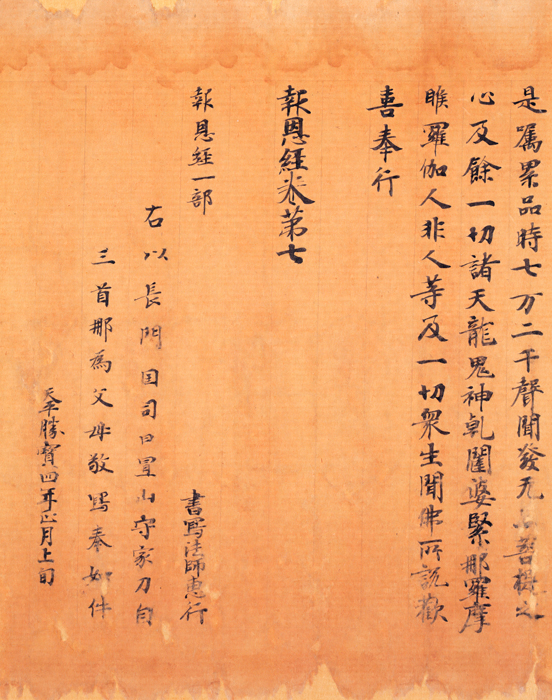 是嘱累品時七万二千聲聞發无上菩提之
心及餘一切諸天龍鬼神乹闥婆緊那羅摩
睺羅伽人非人等及一切衆生聞佛所說歡
喜奉行
報恩経卷第七
報恩経一部
書寫法師惠行
右以長門国司日置山守家刀自
三首那為父母敬寫奉如件
天平勝寳四年正月上旬